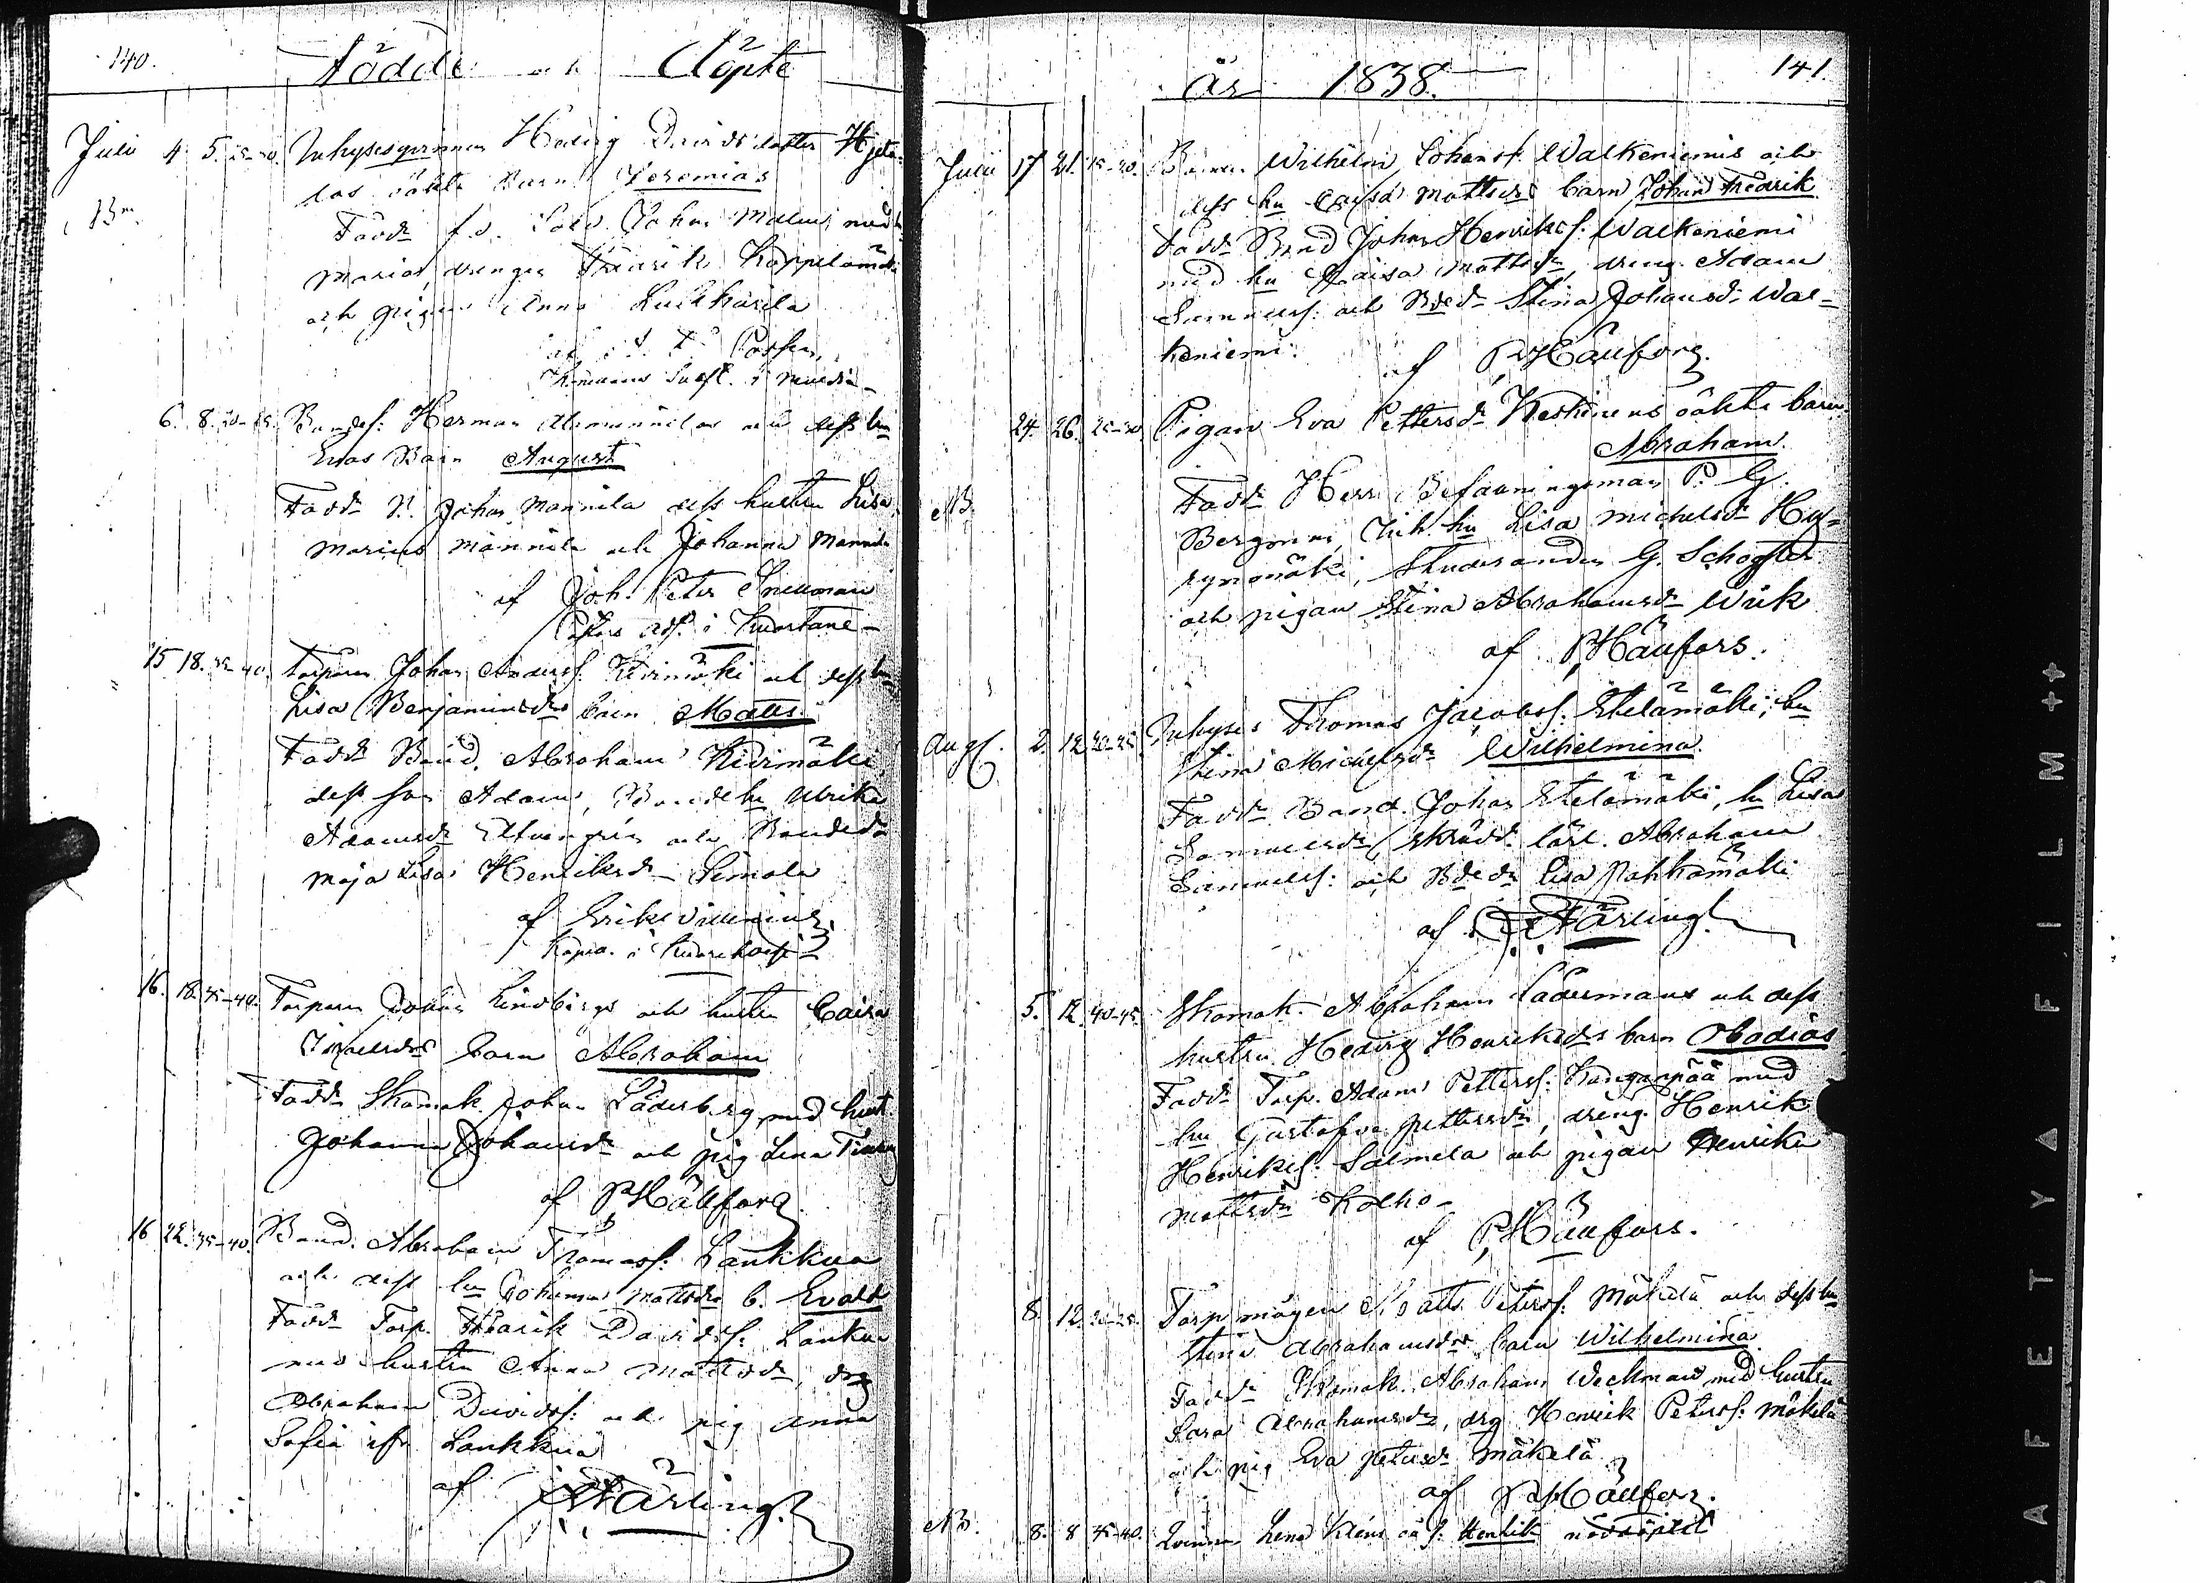 140.
Födde och Döpte
Juli 4. 5. 25-30. Inhysesqvinnan Hedvig Davidsdotter Hjeta-
las oäkta Barn Jeremias
Fadd. f.d. Sold. Johan Malm med h.
Maria, drengen Fredrik Kappelamäki
och pigan Anna Luukkarila
af Posse,
i
6. 8. 20-25. Bondes. Herman Männilas och dess hu
Evas Barn August
Fadd. B. Johan Mannila dess hustru Lisa
Marias Männila och Johanna Mannila
af Joh. Peter Snellman
Past. adj. i Kuortane
15 18. 35-40. Torparen Johan Anderss. Kivimäki och dess hu
Lisa Benjaminsdrs barn Matts.
Fadd. Bond. Abraham Kivimäki,
dess son Adam, Bondehu Ulrika
Adamsdr och Bondedr
Maja Lisa Henriksdr Simola
af Erik
16. 18. 35-40. Torparen Johan Lindbergs och hustru Caisa
barn Abraham
Fadd. Skomak. Johan Söderberg med hust
Johanna Johansdr och pig Lena
af P Hällfors
16 22. 35-40. Bond. Abraham Thomass. Lankkua
och dess hu Johanna Mattsdrs b. Evald
Fadd. Torp. Fredrik Davidss. Lankua
med hustru Anna Mattsdr, drg
Abraham Davidss. och pig Anna
Sofia Lankkua
af Wärling
år 1838.
141.
Juli 17 21. 15-20. Bonden Wilhelm Johanss. Walkeniemis och
dess hu Caisa Mattsdrs barn Johan Fredrik
Fadd. Bond Johan Henrikss. Walkeniemi
med hu Caisa Mattsdr, dreng Adam
Samuelss. och Bdedr Stina Johansdr Wal-
keniemi.
af P Hällfors
24. 26. 25-30 Pigan Eva Pettersdr Keskinens oäkta barn
Abraham.
NB.
Fadd. Herr Befallningsman P. G.
Bergman, Inh. hu Lisa Michelsdr Hy-
rynmäki, Studeranden G.
och pigan Stina Abrahamsdr Wiik
af P Hällfors.
Aug. 2. 12 20-25 Inhyses Thomas Jacobss. Etelämäki, hu
Stina Michelsdr Wilhelmina.
Fadd. Bond. Johan Etelämäki, hu Lisa
Samuelsdr, skrädd. lärl. Abraham
Samuelss. och Bdedr Lisa Pahkamäki
af Wärling
5. 12. 40-45. Skomak. Abraham Södermans och dess
hustru Hedvig Henriksdrs barn Obadias
Fadd. Torp. Adam Petterss. Kanganpää med
hu Gustafva Pettersdr, dreng. Henrik
Henrikss. Salmela och pigan Henrika
Mattsdr Kolho
af P Hällfors.
8. 12. 20-25. Torpmågen Matts Peterss. Mäkelä och dess hu
Stina Abrahamsdrs barn Wilhelmina
Fadd. Skomak. Abraham Weckman med hustru
Sara Abrahamsdr, drg Henrik Peterss. Mäkelä
och pig Eva Petersdr Mäkelä
af P Hällfors.
NB. 8. 8 35-40. Qvinnan Lena oä. s. Henrik nöddöpt
SAFETY A FILM ++